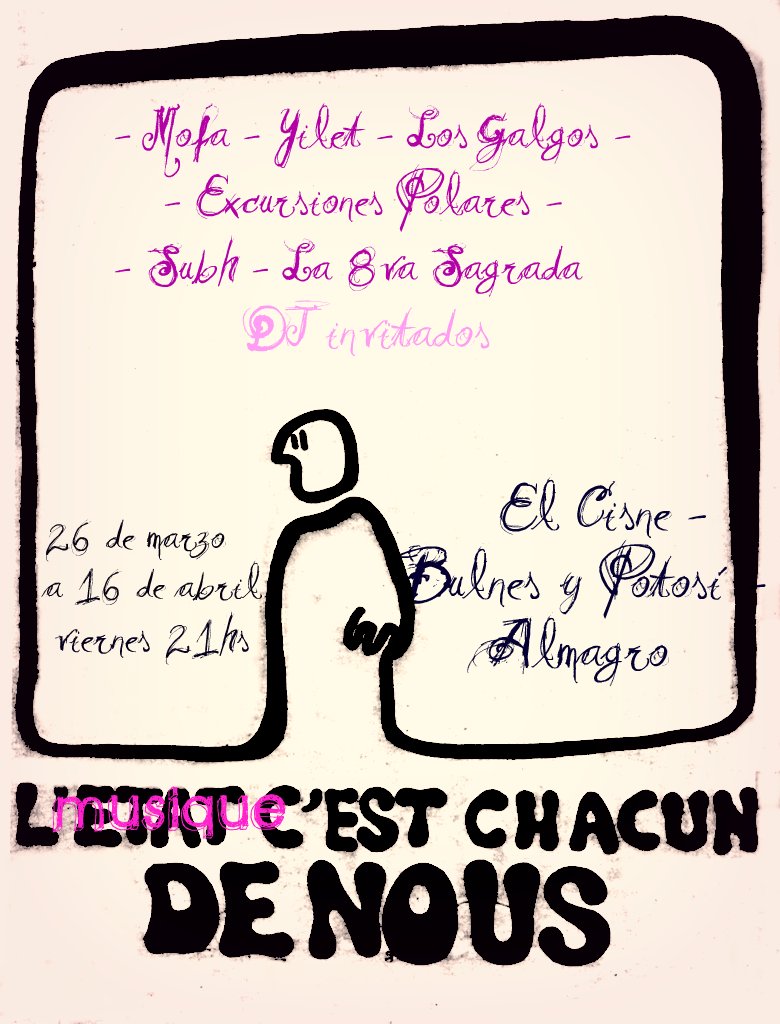 - Mofa - Yilet - Los Galgos -
- Excursiones Polares -
- Subh - La 8va Sagrada
DJ invitados
26 de marzo
a 16 de abril
viernes 21hs
El Cisne -
Bulnes y Potosí -
Almagro
L'ETAT C'EST CHACUN
musique
DE NOUS